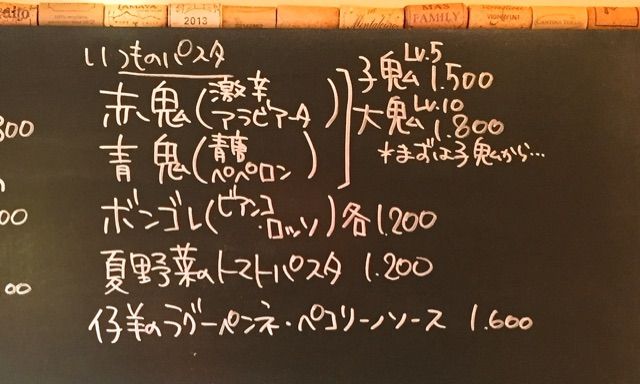 2013
MAS
FAMILY
いつものパスタ
赤鬼(激辛アラビアータ)
青鬼(青唐ペペロン)
子鬼Lv.5 1.500
大鬼Lv.10 1.800
*まずは子鬼から…
ボンゴレ(ビアンコ・ロッソ)各1.200
夏野菜のトマトパスタ 1.200
仔羊のラグーペンネ・ペコリーノソース 1.600
00
00